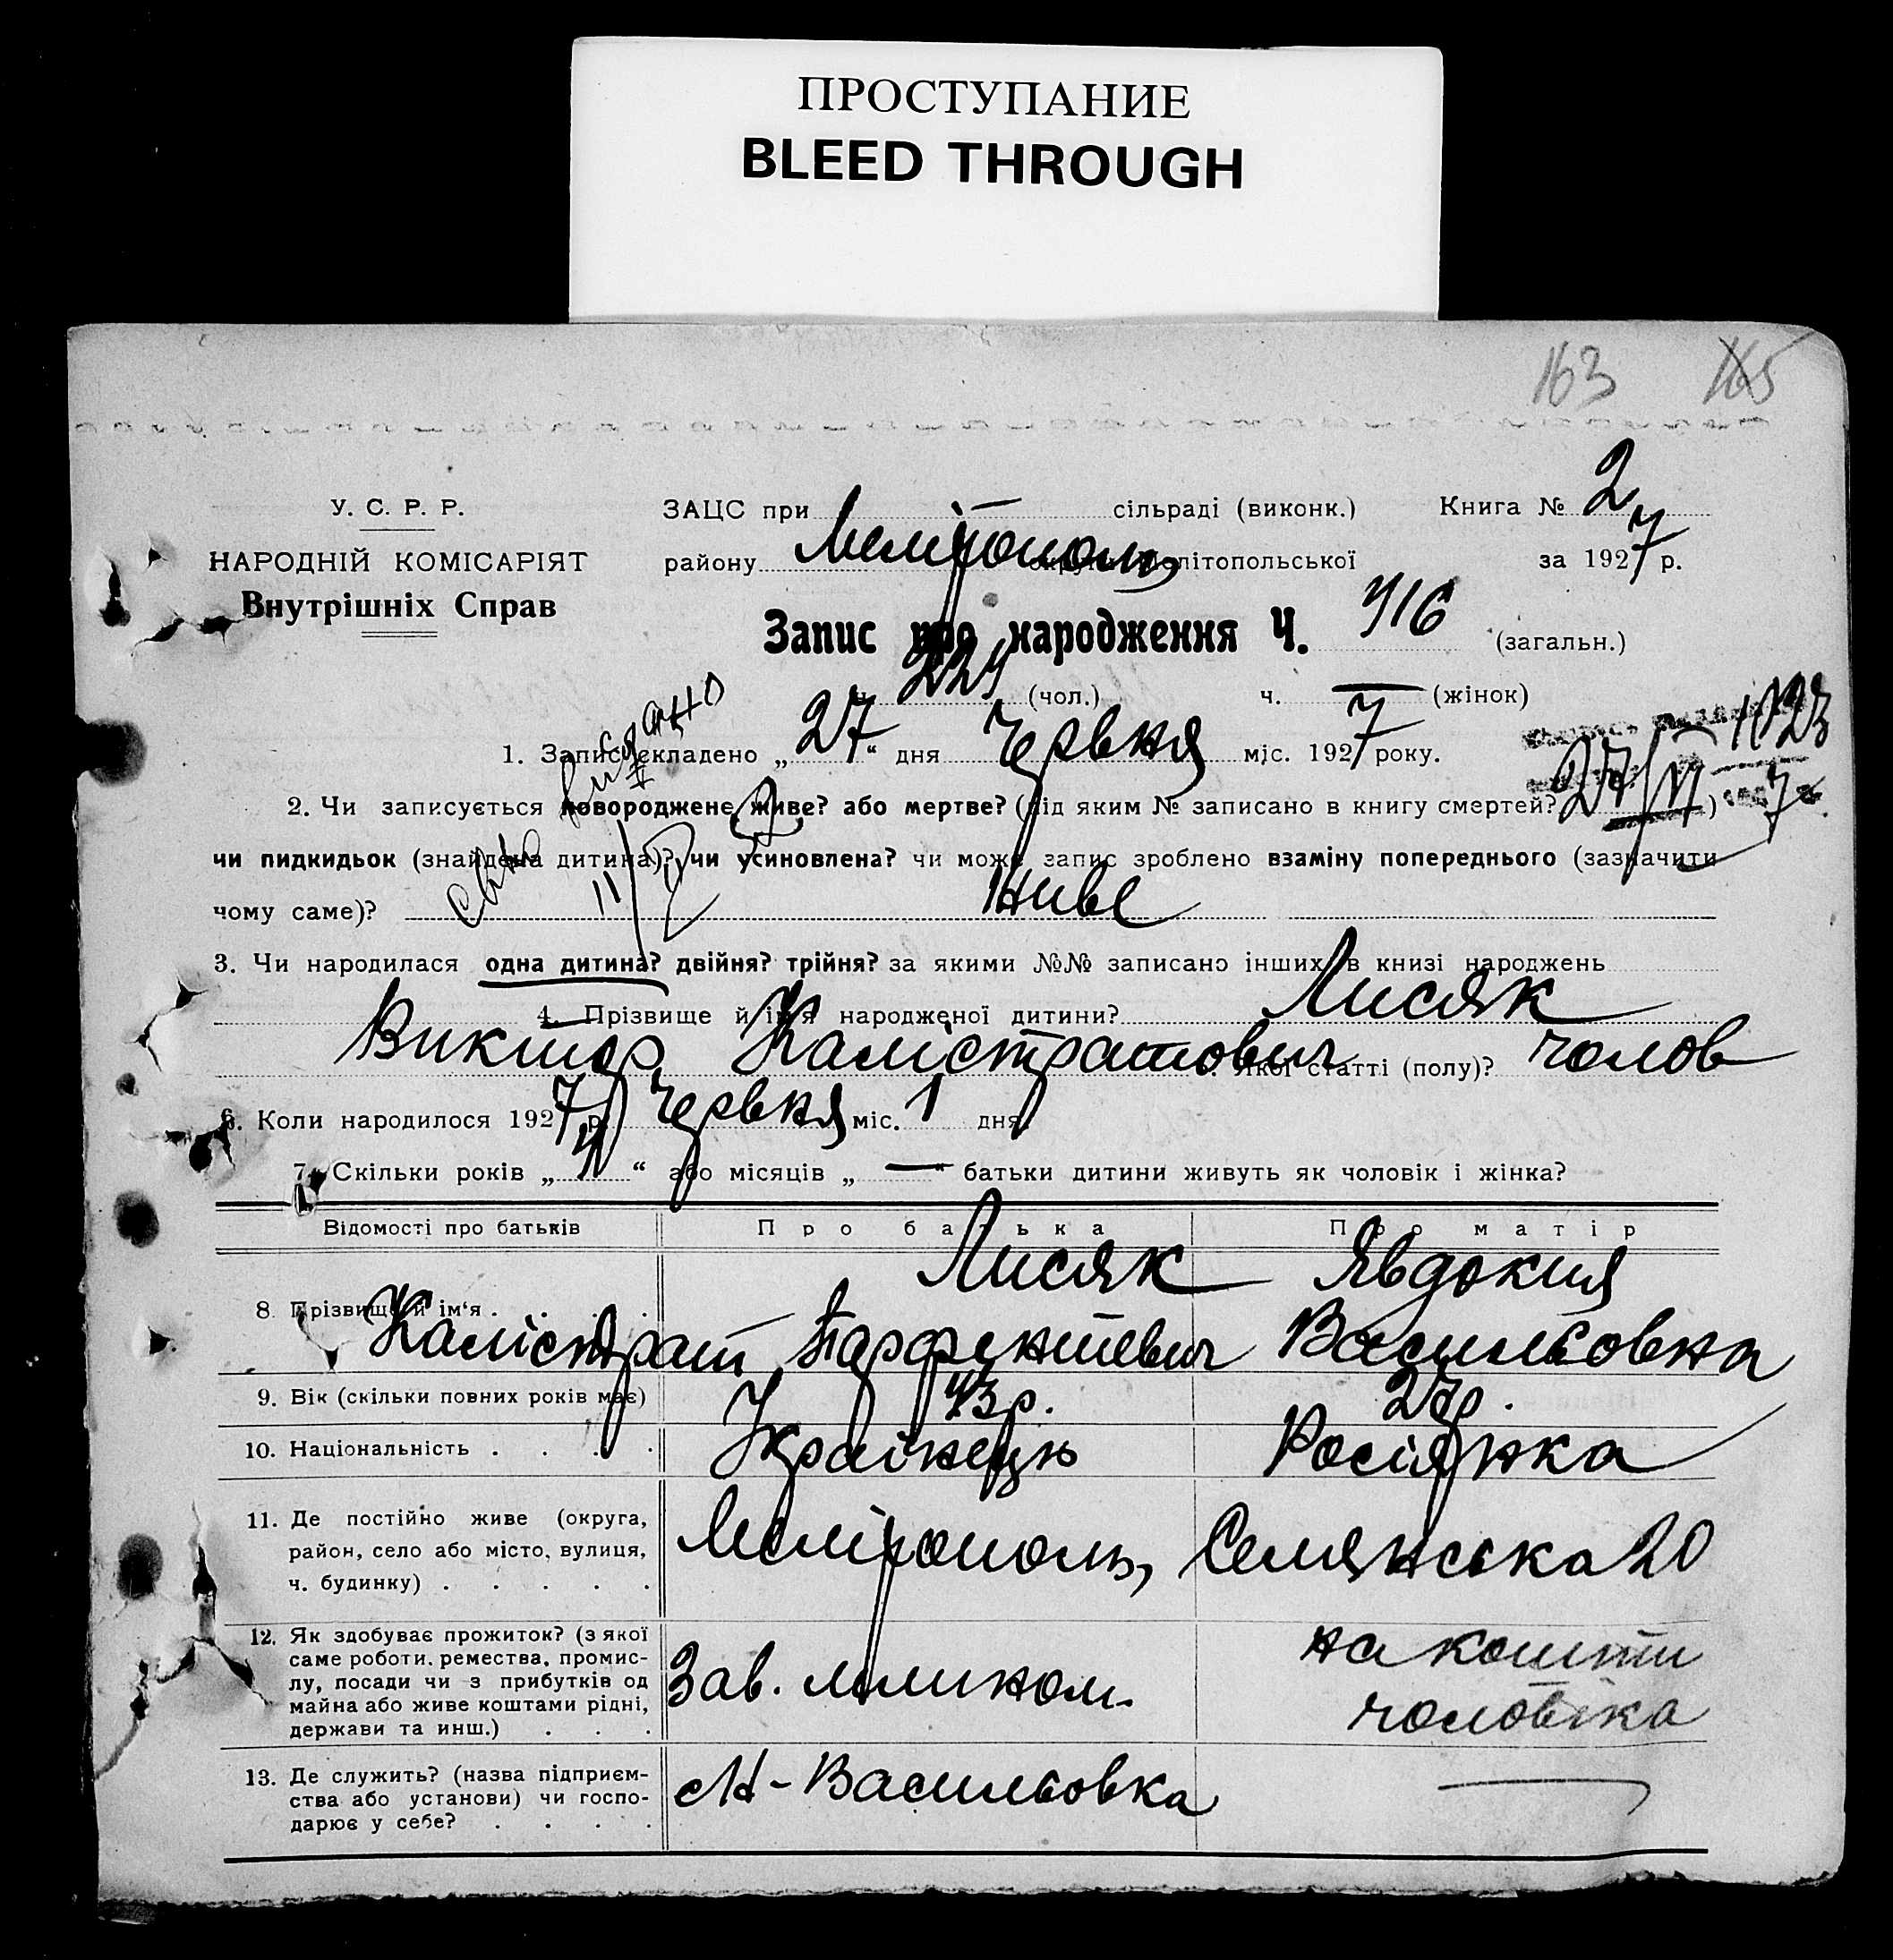 ПРОСТУПАНИЕ
BLEED THROUGH
163 165
У. С. Р. Р.
НАРОДНІЙ КОМІСАРІЯТ
Внутрішніх Справ
ЗАЦС при сільраді (виконк.) Книга № 2
району Мелітополь округи Мелітопольської за 1927 р.
Запис про народження Ч. 416 (загальн.)
ч. 224 (чол.) ч. — (жінок)
1. Запис складено „27“ дня Червня міс. 1927 року.
видано
1023
27/VI 7
2. Чи записується новороджене живе? або мертве? (під яким № записано в книгу смертей? )
чи пидкидьок (знайдена дитина)? чи усиновлена? чи може запис зроблено взаміну попереднього (зазначити
чому саме)? живе
3. Чи народилася одна дитина? двійня? трійня? за якими №№ записано інших в книзі народжень
4. Прізвище й ім'я народженої дитини? Лисяк
Виктор Калістратович якої статті (полу)? чолов
6. Коли народилося 1927 р. Червня міс. 1 дня
7. Скільки років „4“ або місяців „—“ батьки дитини живуть як чоловік і жінка?
Відомості про батьків Про батька Про матір
8 Прізвище й ім'я . . . . Лисяк Явдокия
Калістрат Парфентиевич Васильовна
9. Вік (скільки повних років має) 43 р. 27 р.
10. Національність . . . . Українець Росіянка
11. Де постійно живе (округа,
район, село або місто, вулиця,
ч. будинку) . . . . .
Мелітополь, Семянська 20
12. Як здобуває прожиток? (з якої
саме роботи, ремества, промис-
лу, посади чи з прибутків од
майна або живе коштами рідні,
держави та инш.) . . .
Зав. млином. на кошти
чоловіка
13. Де служить? (назва підприєм-
ства або установи) чи госпо-
дарює у себе? . . . .
М-Васильовка —